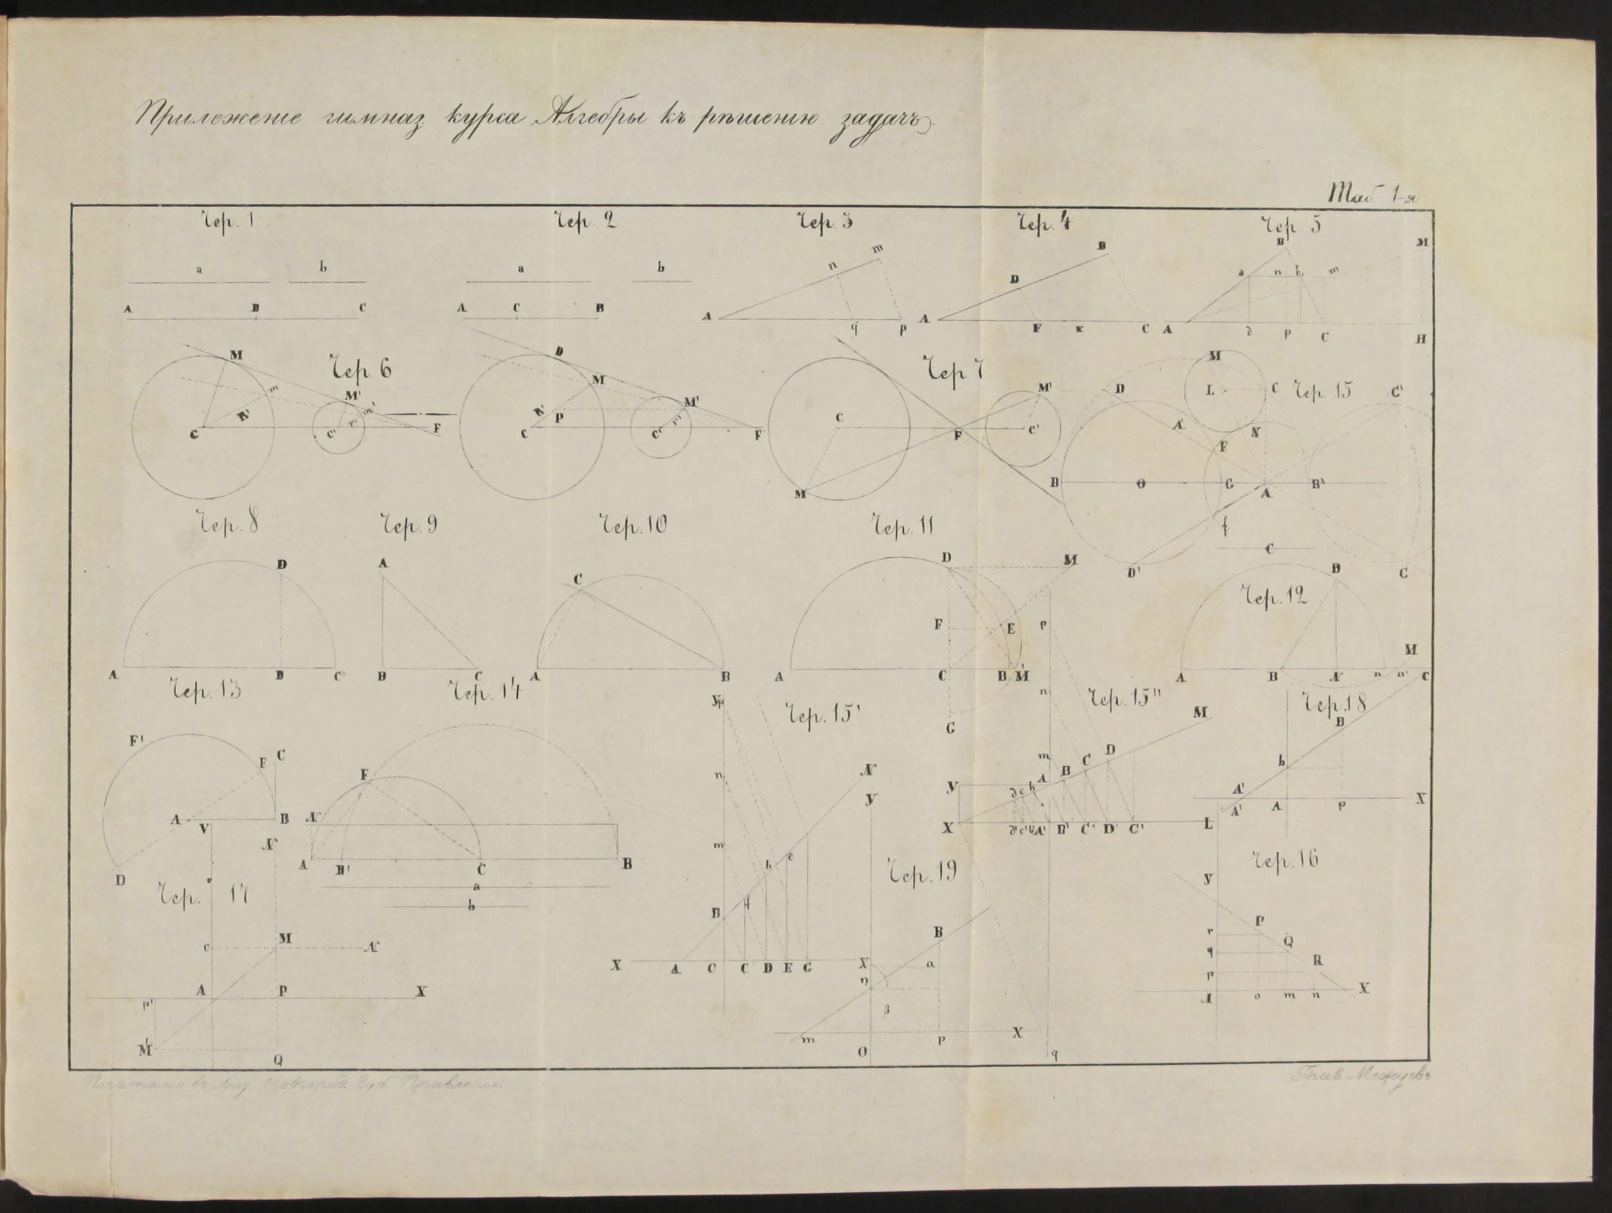 Приложение гимназ курса Алгебры къ рѣшенію задачъ.
Таб. 1-я
Чер. 1
a b
A B C
Чер. 2
a b
A C B
Чер. 3
A n m q p
Чер. 4
A D B F x C
Чер. 5
B M
a n h m
A d p C H
Чер. 6
M M' m m'
C R' C' F
D M M'
C R' P C' F
Чер. 7
C M' C' F M
Чер. 15
M D L C C'
A' F N
B O G A B'
f
C
D' C
Чер. 8
D
A B C
Чер. 9
A
B C
Чер. 10
C
A B
Чер. 11
D M
F E P
A C B M'
G
Чер. 12
D
M
A B N n n' C
Чер. 13
F' F C
A B
D
Чер. 14
F
N
A B' C B
a
b
Чер. 15'
n
m
N
b e
B
X A C C D E G
Чер. 15"
n M
m A B C D
y
X A' B' C' D' C' L
Чер. 18
B
b
A' A' A P X
Чер. 17
V N
c M N
p' A P X
M' Q
Чер. 19
y
B
X a
n
β
m P X
O q
Чер. 16
y
P
r Q
q R
p
A o m n X
Печатано въ Ниж. Новгород. Губ. Правленіи
Грав. Межуевъ